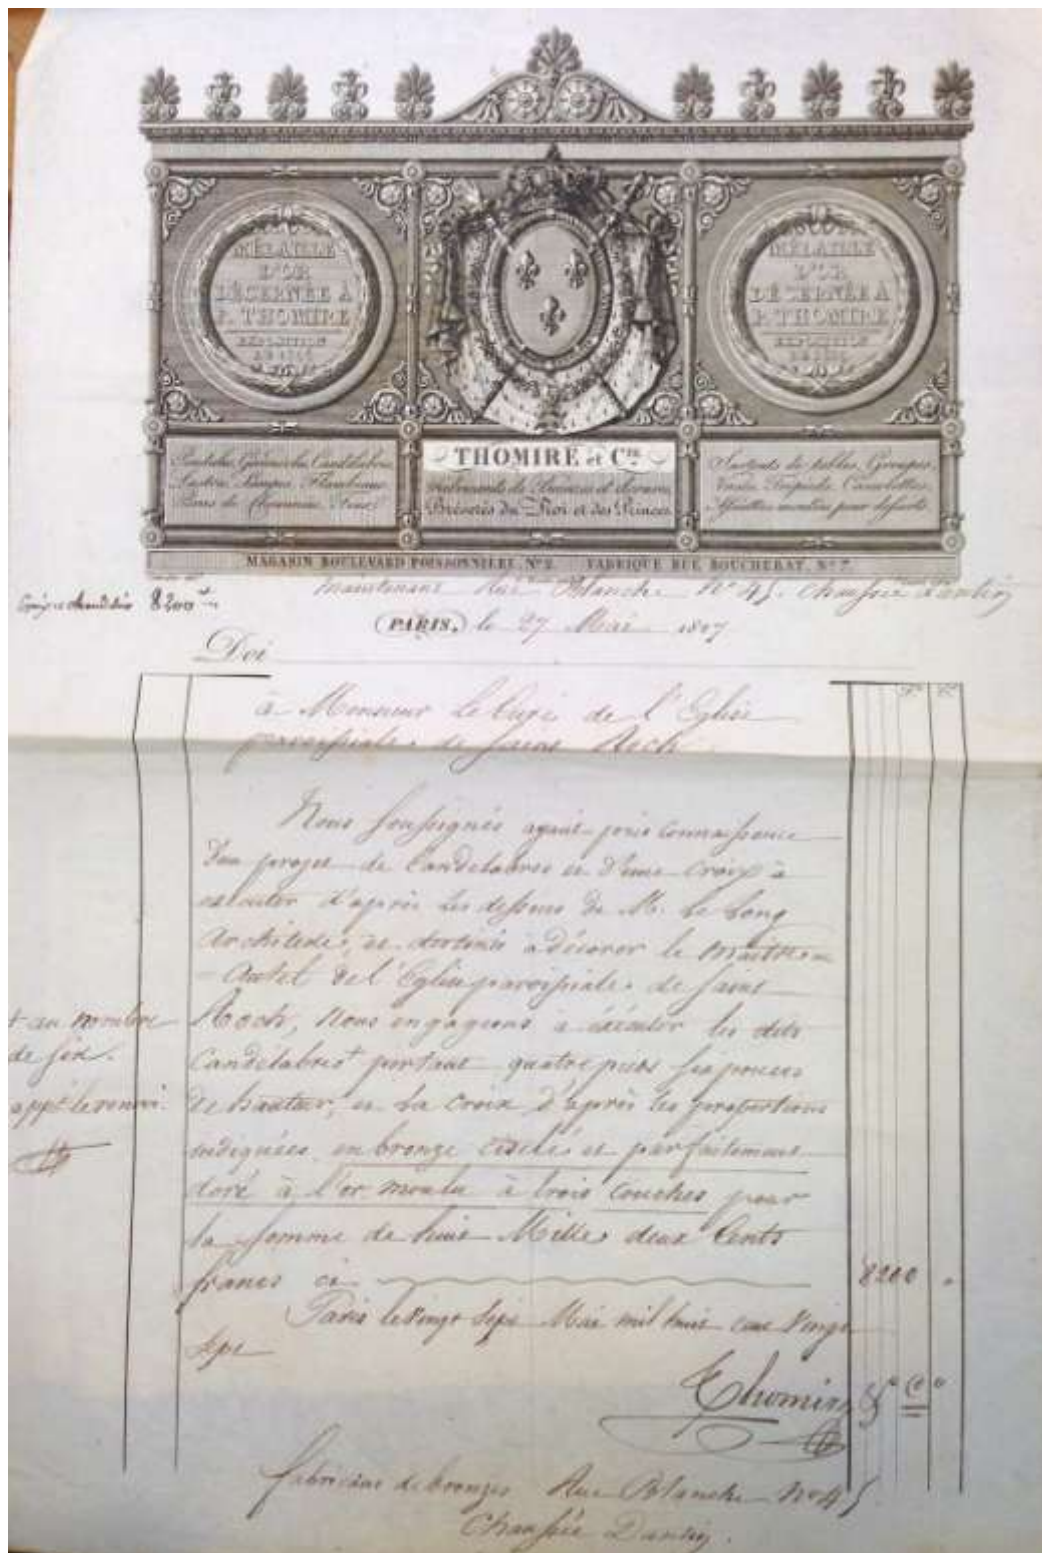 MÉDAILLE
D'OR
DÉCERNÉE À
P. THOMIRE
EXPOSITION
MÉDAILLE
D'OR
DÉCERNÉE À
P. THOMIRE
EXPOSITION
Pendules, Candelabres,
Lustres, Lampes, Flambeaux
THOMIRE et Cie.
Brevetés du Roi et des Princes
Surtouts de tables, Groupes,
Vases, Trépieds, Cassolettes,
MAGASIN BOULEVARD POISSONNIERE, No. 2. FABRIQUE RUE BOUCHERAT, No. 7.
maintenant Rue Blanche No 45. Chaussée d'antin
8200
PARIS, le 27 Mai 1827
Doi
à Monsieur le Curé de l'Eglise
paroissiale de Saint Roch
Nous soussignés ayant pris connaissance
d'un projet de Candelabres et d'une Croix à
executer d'après les dessins de M. Le Long
Architecte, et destinés à décorer le Maitre
- Autel de l'Eglise paroissiale de Saint
+ au nombre
de six.
Roch, Nous engageons à exécuter les dits
Candélabres + portant quatre pieds six pouces
de hauteur, et la Croix d'après les proportions
indiquées en bronze ciselé et parfaitement
doré à l'or moulu à trois couches pour
la somme de huit Mille deux Cents
francs ci 8200
Paris le vingt Sept Mai mil huit cent Vingt
Sept
Thomire & Ce
fabricant de bronzes Rue Blanche No 45
Chaussée Dantin.